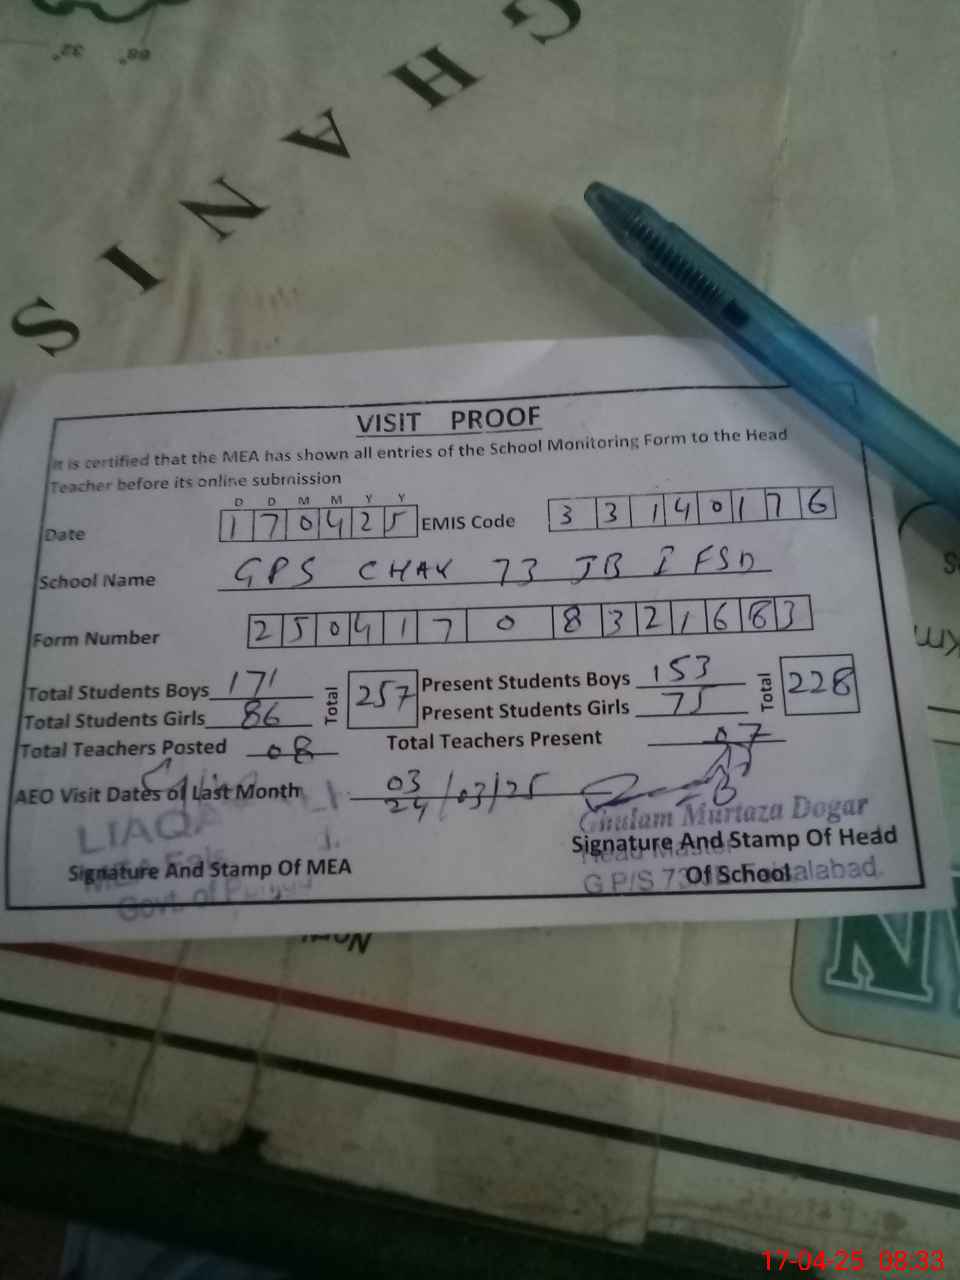 GHANIS
32°
68°
VISIT PROOF
It is certified that the MEA has shown all entries of the School Monitoring Form to the Head
Teacher before its online submission
D D M M Y Y
Date 1 7 0 4 2 5 EMIS Code 3 3 1 4 0 1 7 6
School Name GPS CHAK 73 JB I FSD
Form Number 2 5 0 4 1 7 0 8 3 2 1 6 8 3
Total Students Boys 171 Total 257 Present Students Boys 153 Total 228
Total Students Girls 86 Present Students Girls 75
Total Teachers Posted 08 Total Teachers Present 07
AEO Visit Dates of Last Month 03/24/03/25
Ghulam Murtaza Dogar
Signature And Stamp Of MEA
Signature And Stamp Of Head
Head Master
Of School
G P/S 73 Faisalabad.
Govt. of Punjab
N
17-04-25 08:33